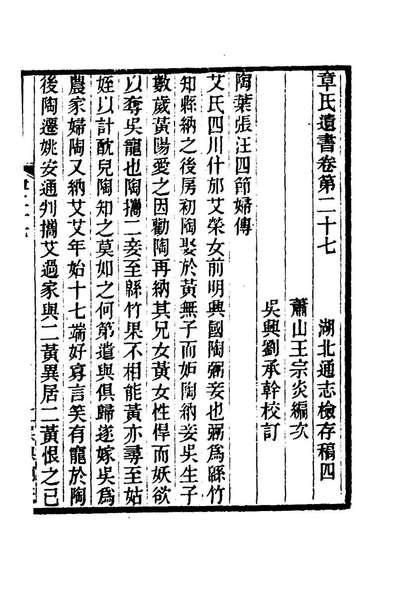 章氏遺書卷第二十七 湖北通志檢存稿四
蕭山王宗炎編次
吳興劉承幹校訂
陶葉張汪四節婦傳
艾氏四川什邡艾榮女前明興國陶弼妾也弼爲緜竹
知縣納之後房初陶娶於黃無子而妬陶納妾吳生子
數歲黃陽愛之因勸陶再納其兄女黃女性悍而妖欲
以奪吳寵也陶攜二妾至緜竹果不相能黃亦尋至姑
姪以計酖兒陶知之莫如之何第遣與俱歸遂嫁吳爲
農家婦陶又納艾艾年始十七端好寡言笑有寵於陶
後陶遷姚安通判攜艾過家與二黃異居二黃恨之已